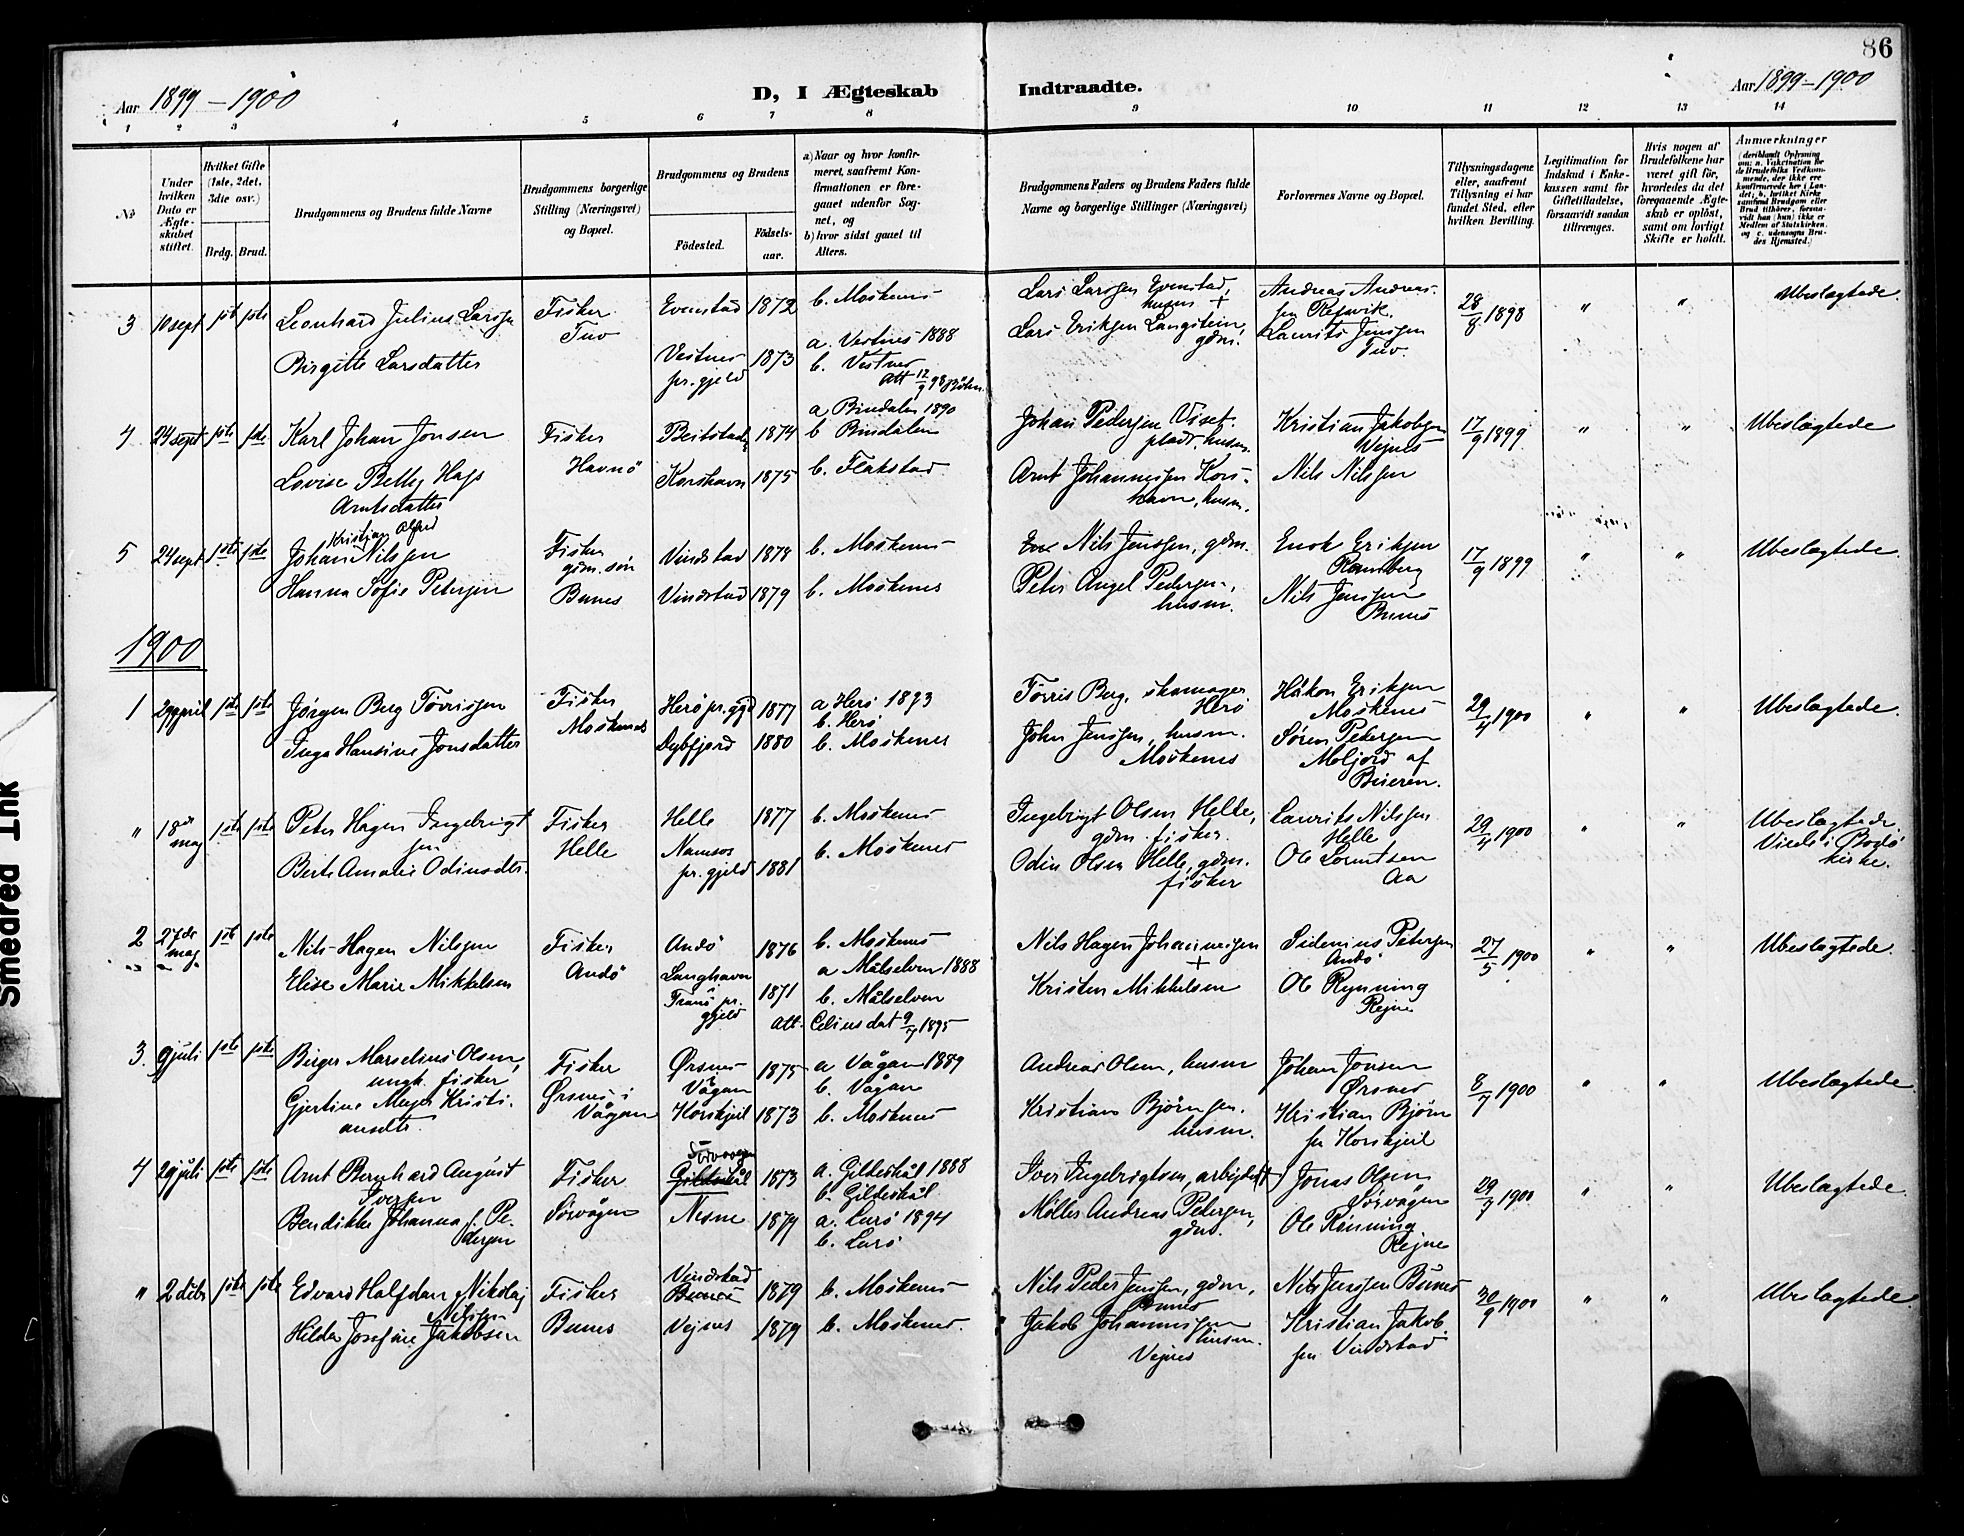 86
Aar 1899–1900
D, I Ægteskab Indtraadte.
Aar 1899–1900
1 2 3 4 5 6 7 8 9 10 11 12 13 14
No
Under hvilken Dato er Ægteskabet stiftet.
Hvilket Gifte (1ste, 2det, 3die osv.)
Brdg. Brud.
Brudgommens og Brudens fulde Navne
Brudgommens borgerlige Stilling (Næringsvei) og Bopæl.
Brudgommens og Brudens
Fødested. Fødselsaar.
a) Naar og hvor konfirmeret, saafremt Konfirmationen er foregaaet udenfor Sognet, og
b) hvor sidst gaaet til Alters.
Brudgommens Faders og Brudens Faders fulde Navne og borgerlige Stillinger (Næringsvei)
Forlovernes Navne og Bopæl.
Tillysningsdagene eller, saafremt Tillysning ei har fundet Sted, efter hvilken Bevilling.
Legitimation for Indskud i Enkekassen samt for Giftetilladelse, forsaavidt saadan tiltrænges.
Hvis nogen af Brudefolkene har været gift før, hvorledes da det foregaaende Ægteskab er opløst, samt om lovligt Skifte er holdt.
Anmærkninger
3 10 sept 1ste 1ste Leonhard Julius Larssen Fisker Tuv Evenstad 1872 b. Moskenes Lars Larssen Evenstad, husm + Andreas Andreassen Rejnvik. 28/8 1898 " " Ubeslægtede.
Birgitte Larsdatter Vestnes pr.gjeld 1873 a. Vestnes 1888 b. Vestnes Att 12/9 98 Lars Eriksen Langstein, gdm. Laurits Jenssen Tuv.
4 24 sept 1ste 1ste Karl Johan Jonsen Fisker Havnö Beitstaden 1874 a Bindalen 1890 b Bindalen Johan Pedersen husm. Kristian Jakobsen Vejnes 17/9 1899 " " Ubeslægtede
Lovise Betty Hass Arntsdatter Korshavn 1875 b. Flakstad Arnt Johannessen Korshavn, husm. Nils Nilssen
5 24 sept 1ste 1ste Johan Kristian Alfred Nilssen Fisker gdm. søn Bunes Vindstad 1878 b. Moskenes Nils Jenssen, gdm. Enok Eriksen Ramberg 17/9 1899 " " Ubeslægtede
Hanna Sofie Petersen Vindstad 1879 b. Moskenes Peter Angel Pedersen, husm. Nils Jenssen Bunes
1900
1 29 april 1ste 1ste Jörgen Berg Tørrissen Fisker Moskenes Herö pr.gjd 1877 a Herö 1893 b. Herö Tørris Berg, skomager Herö Håkon Eriksen Moskenes 29/4 1900 " " Ubeslægtede.
Inga Hansine Jonsdatter Dybfjord 1880 b. Moskenes John Jenssen, husm. Moskenes Sören Pedersen Moljord af Beieren.
" 18de maj 1ste 1ste Peter Hagen Ingebrigtsen Fisker Helle Helle 1877 b. Moskenes Ingebrigt Olsen Helle, gdm. fisker. Laurits Nilssen Helle 29/4 1900 " " Ubeslægtede. Viede i Bodö kirke.
Berte Amalie Odinsdtr. Namsos pr.gjeld 1881 b. Moskenes Odin Olsen Helle, gdm. fisker Ole Lorentsen Aa
2 27de maj 1ste 1ste Nils Hagen Nilssen Fisker Andö Andö 1876 b. Moskenes Nils Hagen Johannessen + Sidenius Petersen Andö 27/5 1900 " " Ubeslægtede.
Elise Marie Mikkelsen Langhavn Tranö pr. gjeld 1871 a Målselven 1888 b. Målselven Att. 9/7 1895 Kristen Mikkelsen Ole Rynning Rejne
3. 9 juli 1ste 1ste Berger Marselius Olsen, ungk. fisker Fisker Ørsnes i Vågan Ørsnes Vågan 1875 a Vågan 1889 b. Vågan Andreas Olsen, husm Johan Jonsen Ørsnes 8/7 1900 " " Ubeslægtede
Gjertine Meyer Kristiansdtr. Horskjeil 1873 b. Moskenes Kristian Björnsen. husm. Kristian Björnsen Horskjeil
4 29 juli 1ste 1ste Arnt Bernhard August Iversen Fisker Sörvågen Gildeskål 1873 a. Gildeskål 1888 b. Gildeskål Iver Ingebrigtsen, arbejder (+) Jonas Olsen Sörvågen 29/7 1900 " " Ubeslægtede.
Bendikke Johanna Pedersen Nesne 1879 a. Lurö 1894 b. Lurö Möller Andreas Petersen, gdm. Ole Rönning Rejne
" 2 1ste 1ste Edvard Halfdan Nikolaj Nilssen Fisker Bunes Vindstad Bunes 1879 b. Moskenes Nils Peder Jenssen, gdm, Bunes Nils Jenssen Bunes 30/9 1900 " " Ubeslægtede.
Hilda Josefine Jakobsen Vejnes 1879 b. Moskenes. Jakob Johannessen husm. Vejnes Kristian Jakobsen Vindstad
Smeared Ink